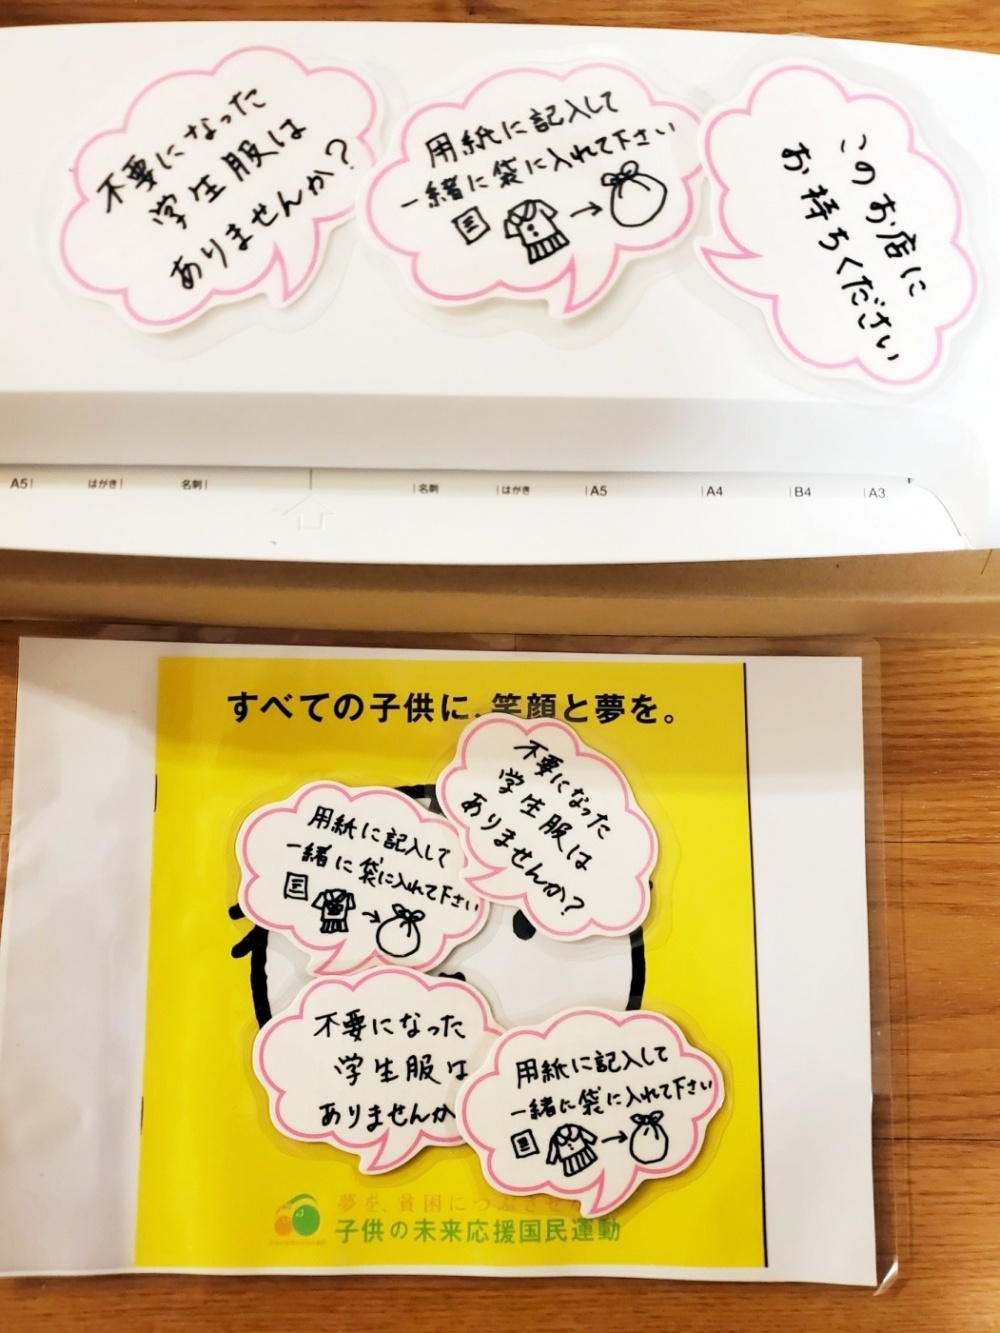 不要になった
学生服は
ありませんか?
用紙に記入して
一緒に袋に入れて下さい
このお店に
お持ちください
A5 はがき 名刺 名刺 はがき A5 A4 B4 A3
すべての子供に、笑顔と夢を。
不要になった
学生服は
ありませんか?
用紙に記入して
一緒に袋に入れて下さい
不要になった
学生服は
ありませんか
用紙に記入して
一緒に袋に入れて下さい
夢を、貧困につぶさせ
子供の未来応援国民運動